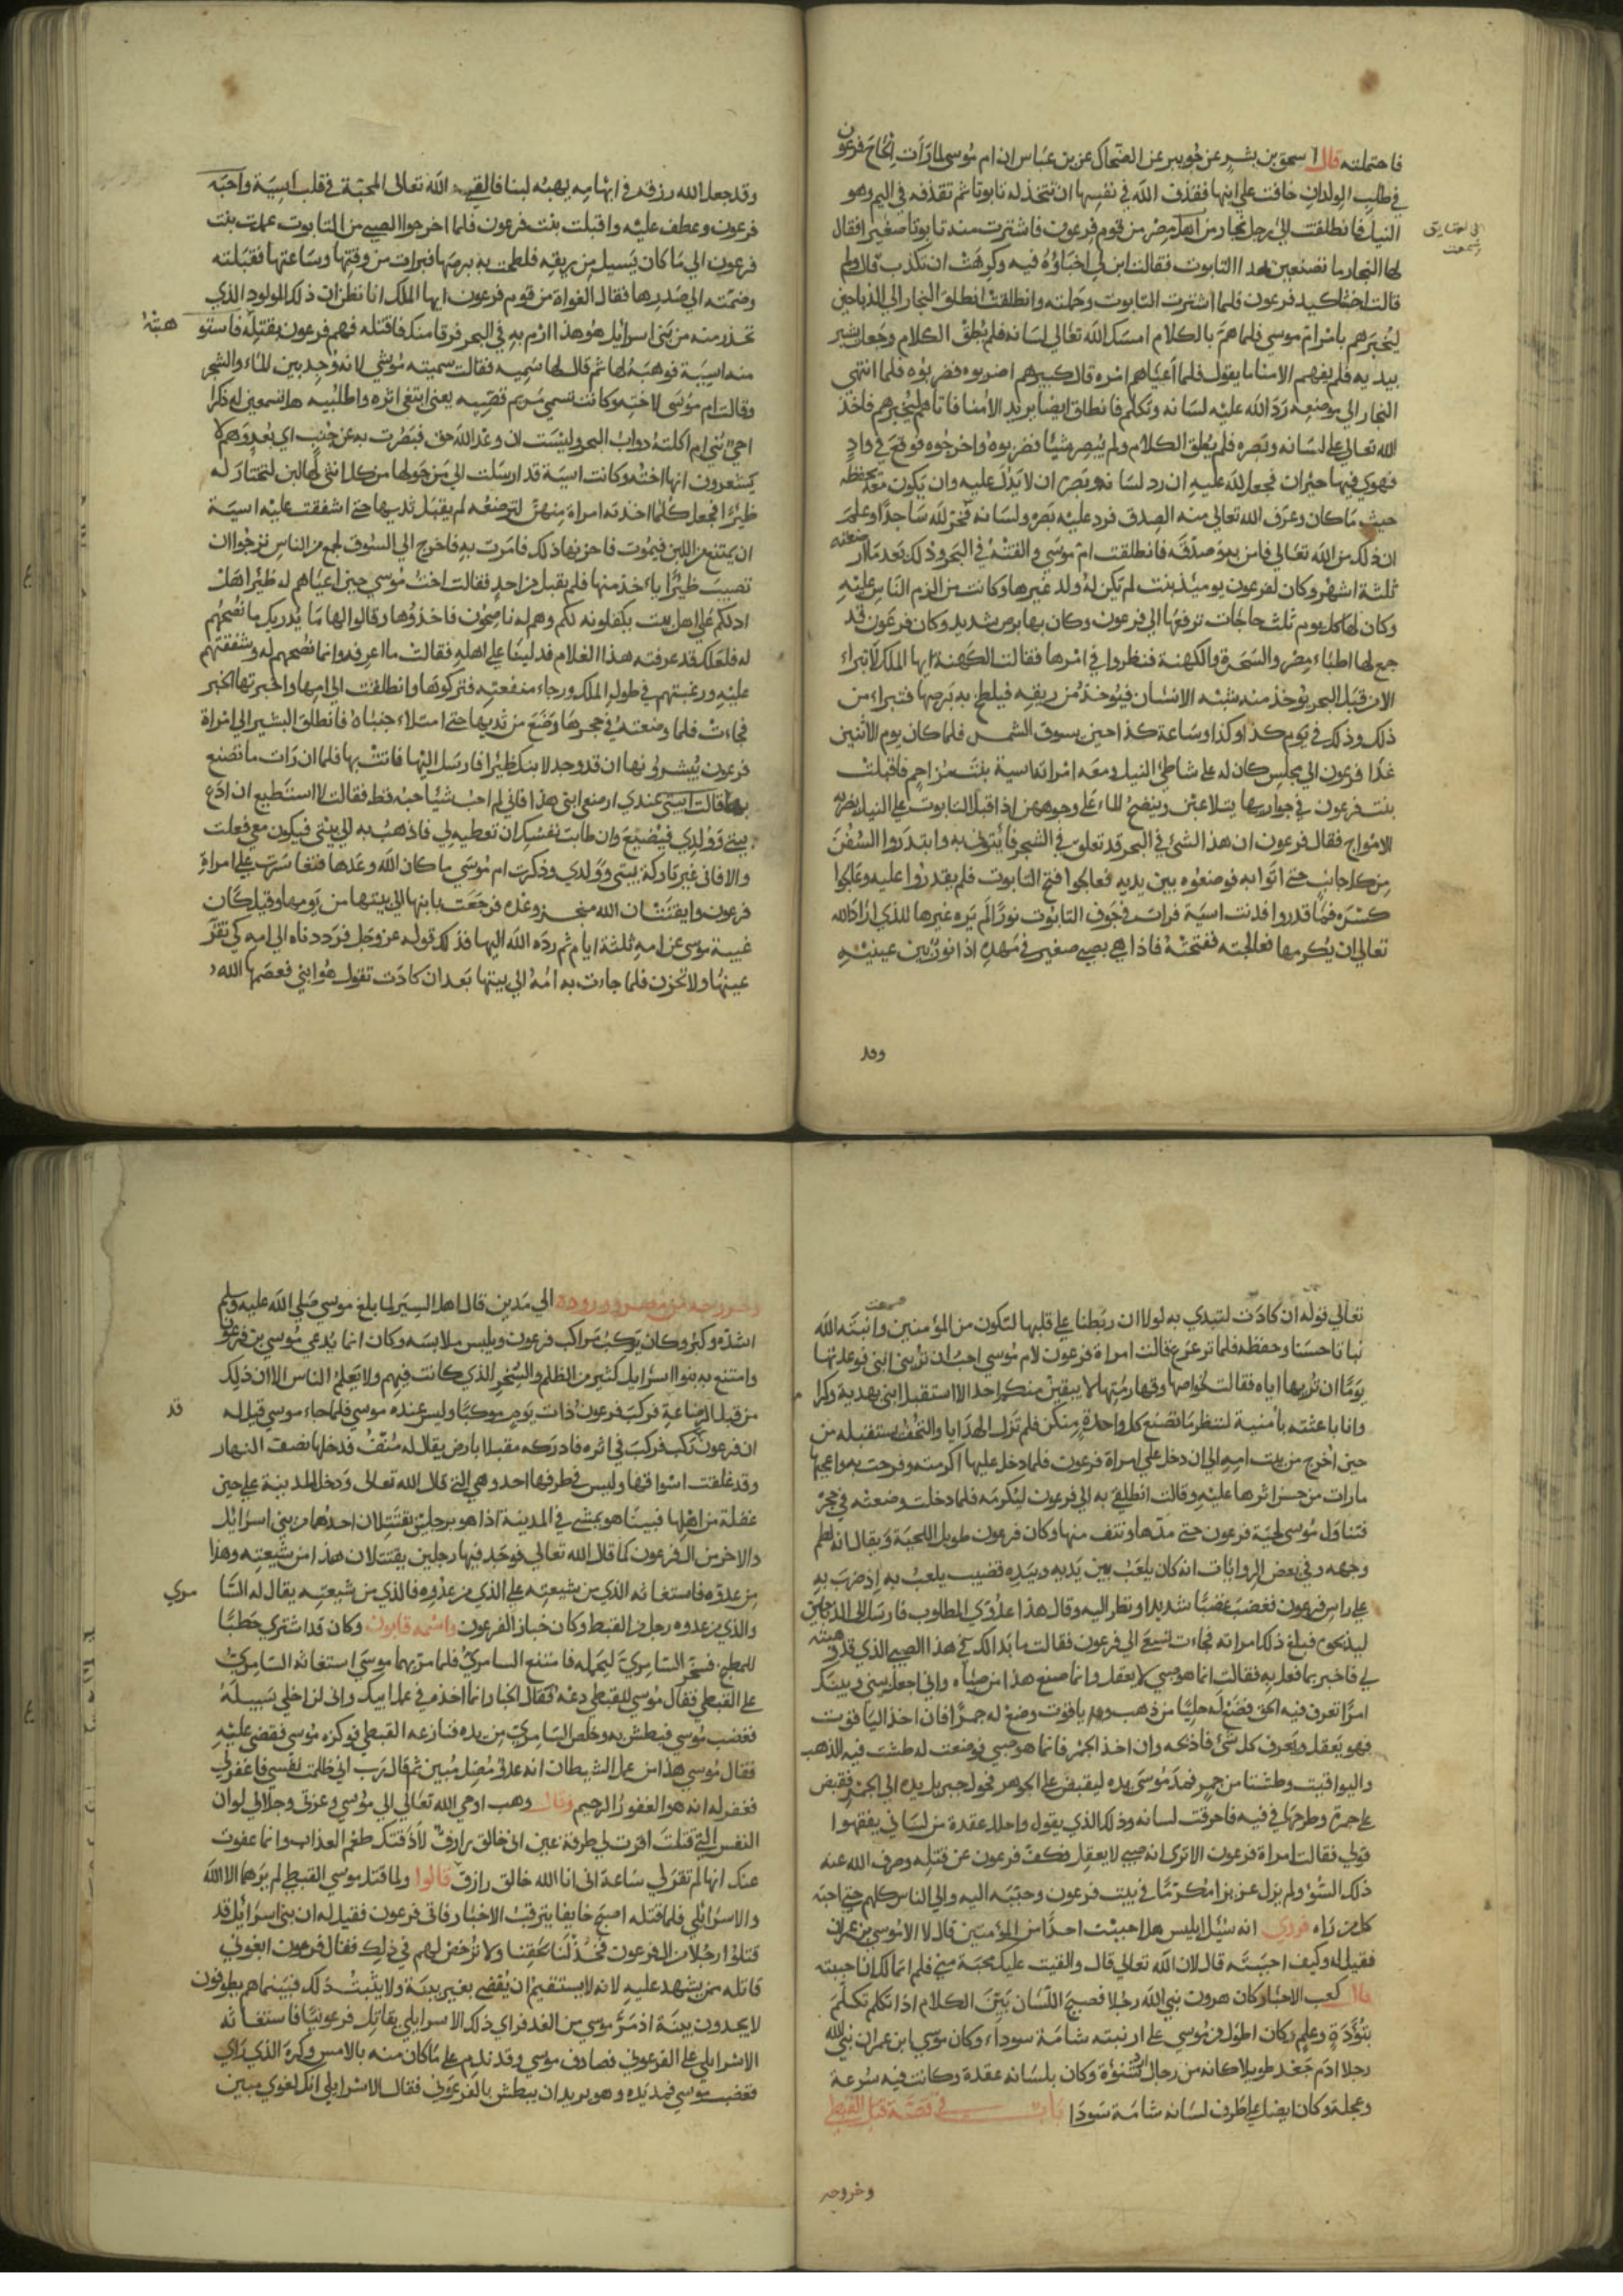 فاحتملته قال اسحق بن بشر عن جويبر عن الضحاك عن بن عباس ان ام موسى لما رات الحاح فرعون
في طلب الولدان خافت على ابنها فقذف الله في نفسها ان تتخذ له تابوتا ثم تقذفه في اليم وهو
النيل فانطلقت الى رجل نجار من اهل مصر من قوم فرعون فاشترت منه تابوتا صغيرا فقال
لها النجار ما تصنعين بهذا التابوت فقالت ابن لي اخباؤه فيه وكرهت ان تكذب قال ولم
قالت اخشا كيد فرعون فلما اشترت التابوت وحملته وانطلقت انطلق النجار الى الذباحين
ليخبرهم بامرام موسى فلما هم بالكلام امسك الله تعالى لسانه فلم يطق الكلام وجعل يشير
بيديه فلم يفهم الامنا ما يقول فلما اعياهم امره قال كبيرهم اضربوه فضربوه فلما انتهى
النجار الى موضعه رد الله عليه لسانه وتكلم فانطلق ايضا يريد الامنا فاتاهم ليخبرهم فاخذ
الله تعالى على لسانه وبصره فلم يطق الكلام ولم يبصر شيئا فضربوه واخرجوه فوقع في واد
فهوى فيها حيران فجعل لله عليه ان رد لسانه وبصره ان لا يدل عليه وان يكون معه يحفظه
حيث ما كان وعرف الله تعالى منه الصدق فرد عليه بصره ولسانه فخر لله ساجدا وعلم
ان ذلك من الله تعالى فامن به وصدقه فانطلقت ام موسى والقته في البحر وذلك بعد ما ارضعته
ثلثة اشهر وكان لفرعون يوميذ بنت لم يكن له ولد غيرها وكانت من اكرم الناس عليه
وكان لها كل يوم ثلث حاجات ترفعها الى فرعون وكان بها برص شديد وكان فرعون قد
جمع لها اطباء مصر والسحرة والكهنة فنظروا في امرها فقالت الكهنة ايها الملك لا تبراء
الا من قبل البحر يوخذ منه شبه الانسان فيوخذ من ريقه فيلطخ به برصها فتبراء من
ذلك وذلك في يوم كذا وكذا وساعة كذا حين يسوق الشمس فلما كان يوم الاثنين
غدا فرعون الى مجلس كان له على شاطئ النيل ومعه امراته اسية بنت مزاحم فاقبلت
بنت فرعون في جواريها يتلاعبن وينضح الماء على وجوههن اذ اقبل التابوت على النيل تضربه
الامواج فقال فرعون ان هذا الشئ في البحر قد تعلق في الشجر فأتوني به وابتدروا السفن
من كل جانب حتى اتوا به فوضعوه بين يديه فعالجوا فتح التابوت فلم يقدروا عليه وعالجوا
كسره فما قدروا فدنت اسية فرات في جوف التابوت نورا لم يره غيرها للذي اراد الله
تعالى ان يكرمها فعالجته ففتحته فاذا هي بصبي صغير في مهده اذا نور بين عينيه
وقد
وقد جعل الله رزقه في ابهامه يهبه لبنا فالقى الله تعالى المحبة في قلب اسية واحبه
فرعون وعطف عليه واقبلت بنت فرعون فلما اخرجوا الصبي من التابوت عمدت بنت
فرعون الى ما كان يسيل من ريقه فلطخت به برصها فبرات من وقتها وساعتها فقبلته
وضمته الى صدرها فقال الغواة من قوم فرعون ايها الملك انا نظن ان ذلك المولود الذي
تحذر منه من بني اسرائيل هو هذا ارم به في البحر فرقا منك فاقتله فهم فرعون بقتله فاستو
هبته
منه اسية فوهبه لها ثم قال لها سميه فقالت سميته موشى لانه وجد بين الماء والشجر
وقالت ام موسى لاخته وكانت تسمى مريم قصيه يعنى ابتغى اثره واطلبيه هل تسمعين له ذكرا
احي بني ام اكلته دواب البحر ونسيت ان وعد الله حق فبصرت به عن جنب اي بعد وهم لا
يشعرون انها اخته وكانت اسية قد ارسلت الى من حولها من كل انثى لها لبن لتختار له
ظيرا فجعل كلما اخذته امراة منهن لترضعه لم يقبل ثديها حتى اشفقت عليه اسية
ان يمتنع من اللبن فيموت فاحزنها ذلك فامرت به فاخرج الى السوق لجمع من الناس ترجوا ان
تصيب ظيرا ياخذ منها فلم يقبل من احد فقالت اخت موسى حين اعياهم له ظيرا هل
ادلكم على اهل بيت يكفلونه لكم وهم له ناصحون فاخذوها وقالوا لها ما يدريك ما نصحهم
له فلعلك قد عرفته هذا الغلام فدلينا على اهله فقالت ما اعرفه وانما نصحهم له وشفقتهم
عليه ورغبتهم في طول الملك ورجاء منفعته فتركوها وانطلقت الى امها واخبرتها الخبر
فجاءت فلما وضعته في حجرها رضع من ثديها حتى امتلاء جنباه فانطلق البشير الى امراة
فرعون يبشرونها ان قد وجد لابنك ظيرا فارسل اليها فاتت بها فلما ان رات ما تصنع
به قالت ايتى عندي ارضعى ابني هذا فاني لم احب شيا حبه قط فقالت لا استطيع ان ادع
بيتي وولدي فيضيع وان طابت نفسك ان تعطيه لي فاذهب به الى بيتي فيكون معي فعلت
والا فاني غير تاركة بيتى وولدي وذكرت ام موسى ما كان الله وعدها فتعاسرت على امراة
فرعون وايقنت ان الله منجز وعده فرجعت بابنها الى بيتها من يومها وقيل كان
غيبة موسى عن امه ثلثة ايام ثم رده الله اليها فذلك قوله عز وجل فرددناه الى امه كي تقر
عينها ولا تحزن فلما جاءت به امه الى بيتها بعد ان كادت تقول هو ابني فعصمها الله
تعالى قوله ان كادت لتبدي به لولا ان ربطنا على قلبها لتكون من المؤمنين وانبته الله
نباتا حسنا وحفظه فلما ترعرع قالت امراة فرعون لام موسى احب ان تريني ابني فوعدتها
يوما ان تريها اياه فقالت لخواصها وقهارمتها لا يبقين منكم احد الا استقبل ابني بهدية وكرا
وانا باعثته بأمنية لتنظر ما تصنع كل واحدة منكن فلم تزل الهدايا والتحف تستقبله من
حين اخرج من بيت امه الى ان دخل على امراة فرعون فلما دخل عليها اكرمته وفرحت به واعجبها
ما رات من حسن اثرها عليه وقالت انطلقي به الى فرعون ليكرمه فلما دخلت وضعته في حجره
فتناول موسى لحية فرعون حتى مدها ونتف منها وكان فرعون طويل اللحية ويقال انه لطم
وجهه وفي بعض الروايات انه كان يلعب بين يديه وبيده قضيب يلعب به اذ ضرب به
على راس فرعون فغضب غضبا شديدا ونظر اليه وقال هذا عدوي المطلوب فارسل الى الذباحين
ليذبحوه فبلغ ذلك امراته فجاءت تسعى الى فرعون فقالت ما بدا لك في هذا الصبي الذي قد وهبته
لي فاخبر بما فعل به فقالت انما هو صبي لا يعقل وانما صنع هذا من صباه واني اجعل بيني وبينك
امرا تعرف فيه الحق فضع له حليا من ذهب وياقوت وضع له جمرا فان اخذ الياقوت
فهو يعقل ويعرف كل شئ فاذبحه وان اخذ الجمر فانما هو صبي فوضعت له طشت فيه الذهب
واليواقيت وطشتا من جمر فمد موسى يده ليقبض على الجوهر فحول جبريل يده الى الجمر فقبض
على جمرة وطرحها في فيه فاحرقت لسانه وذلك الذي يقول واحلل عقدة من لساني يفقهوا
قولي فقالت امراة فرعون الا ترى انه صبي لا يعقل فكف فرعون عن قتله وصرف الله عنه
ذلك السوء ولم يزل عزيزا مكرما في بيت فرعون وحببه اليه والى الناس كلهم حتى احبه
كل من راه فروي انه سئل ابليس هل احببت احدا من المؤمنين قال لا الا موسى بن عمران
فقيل له وكيف احببته قال لان الله تعالى قال والقيت عليك محبة مني فلم اتمالك ان احببته
قال كعب الاحبار كان هرون نبي الله رجلا فصيح اللسان بين الكلام اذا تكلم تكلم
بتؤدة وعلم وكان اطول من موسى على ارنبته شامة سوداء وكان موسى ابن عمران نبي الله
رجلا ادم جعد طويلا كانه من رجال ازد شنوءة وكان بلسانه عقدة وكانت فيه سرعة
وعجلة وكان ايضا على طرف لسانه شامة سودا باب في قصة قتل القبطي
وخروجه
وخروجه من مصر ووروده الى مدين قال اهل السير لما بلغ موسى صلى الله عليه وسلم
اشده وكبر وكان يركب مراكب فرعون ويلبس ملابسه وكان انما يدعى موسى بن فرعون
وامتنع به بنو اسرايل لكثير من الظلم والسخر الذي كانت فيهم ولا يعلم الناس الا ان ذلك
من قبل الرضاعة فركب فرعون ذات يوم موكبا وليس عنده موسى فلما جاء موسى قيل له
قد
ان فرعون ركب فركب في اثره فادركه مقيلا بارض يقال له منف فدخلها نصف النهار
وقد غلقت اسواقها وليس في طرفها احد وهي التي قال الله تعالى ودخل المدينة على حين
غفلة من اهلها فبينا هو يمشى في المدينة اذا هو برجلين يقتتلان احدهما من بني اسرائل
والاخر من ال فرعون كما قال الله تعالى فوجد فيها رجلين يقتتلان هذا من شيعته وهذا
من عدوه فاستغاثه الذي من شيعته على الذي من عدوه فالذي من شيعته يقال له السا
مري
والذي من عدوه رجل من القبط وكان خباز الفرعون واسمه قانون وكان قد اشترى حطبا
للمطبخ فسخر السامري ليحمله فامتنع السامري فلما مر بهما موسى استغاثه السامري
على القبطي فقال موسى للقبطي دعه فقال الخباز انما اخذه في عمل ابيك وابى ان يخلي سبيله
فغضب موسى فبطش به وخلص السامري من يده فنازعه القبطي فوكزه موسى فقضى عليه
فقال موسى هذا من عمل الشيطان انه عدو مضل مبين ثم قال رب اني ظلمت نفسي فاغفرلي
فغفر له انه هو الغفور الرحيم وقال وهب اوحى الله تعالى الى موسى وعزتي وجلالي لو ان
النفس التي قتلت اقرت لي طرفة عين اني خالق رازق لاذقتك طعم العذاب وانما عفوت
عنك انها لم تقر لي ساعة اني انا الله خالق رازق قالوا ولما قتل موسى القبطي لم يرهما الا الله
والاسرائلي فلما قتله اصبح خايفا يترقب الاخبار فاتى فرعون فقيل له ان بني اسرائل قد
قتلوا رجلا من ال فرعون فخذ لنا بحقنا ولا ترخص لهم في ذلك فقال فرعون ابغوني
قاتله من يشهد عليه لانه لا يستقيم ان يقضى بغير بينة ولا يثبت ذلك فبينما هم يطوفون
لا يجدون بينة اذ مر موسى من الغد فراى ذلك الاسرايلي يقاتل فرعونيا فاستغاثه
الاسرايلي على الفرعوني فصادف موسى وقد ندم على ما كان منه بالامس وكره الذي راى
فغضب موسى فمد يده وهو يريد ان يبطش بالفرعوني فقال للاسرايلي انك لغوي مبين